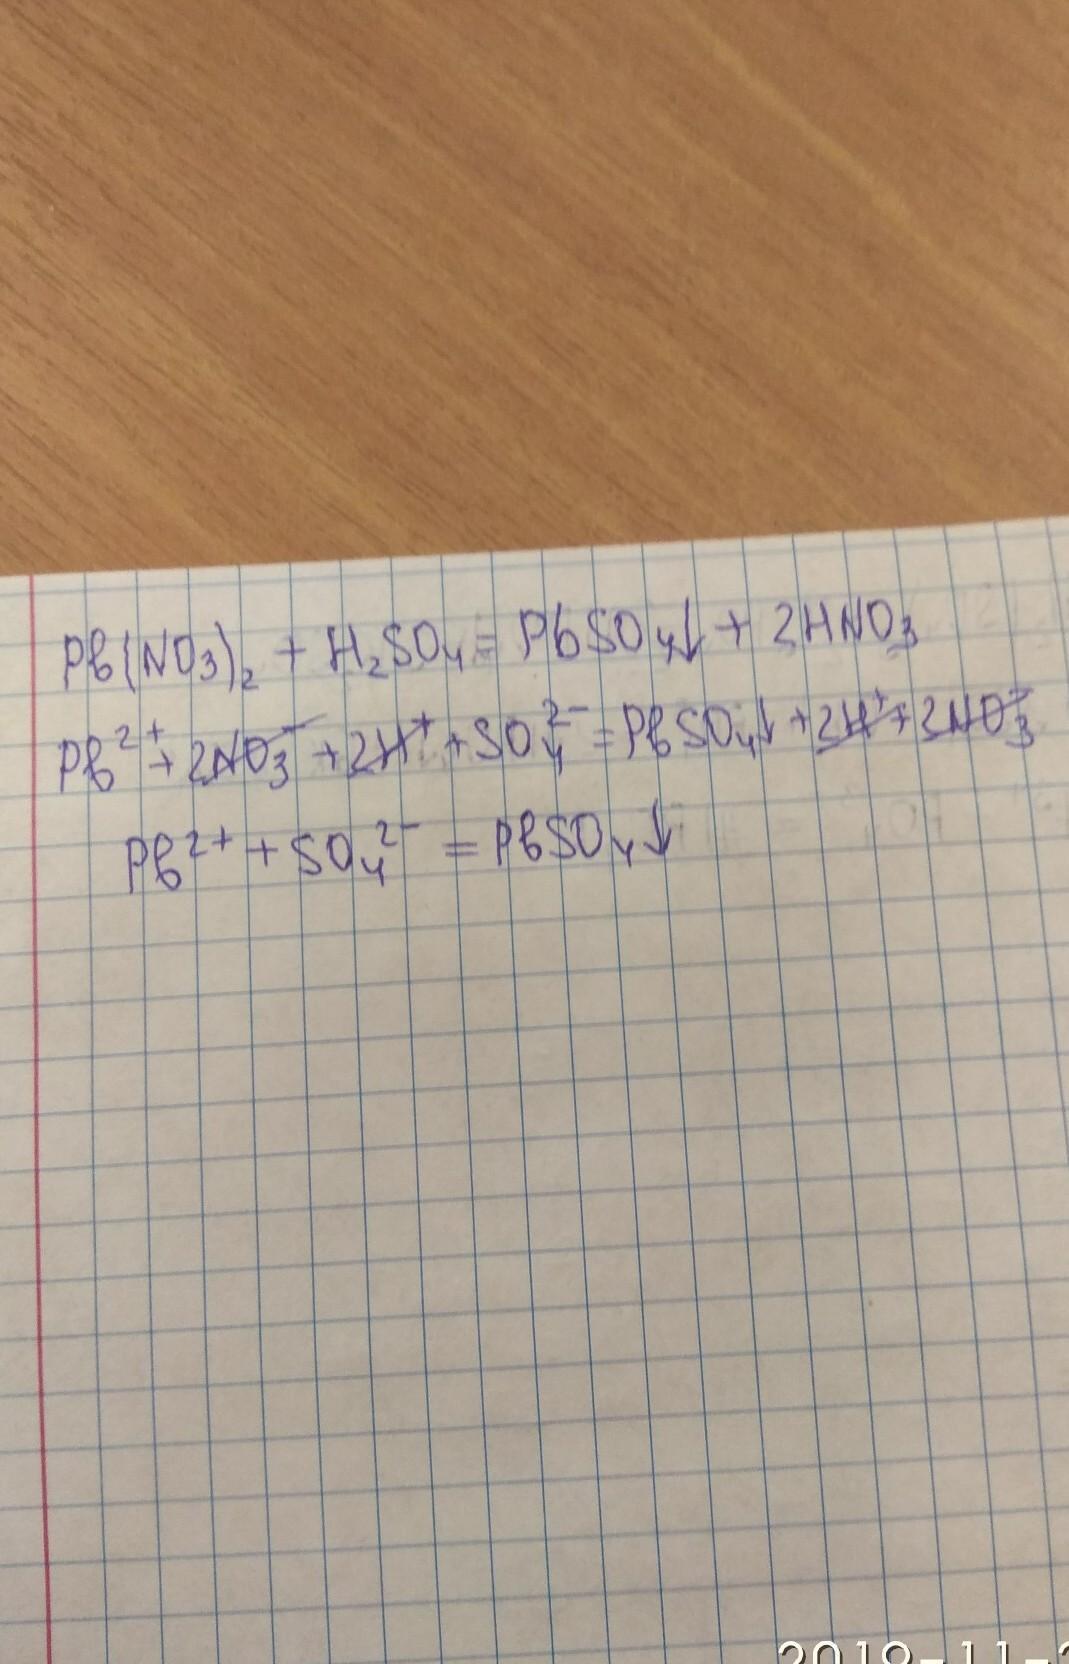 Pb(NO₃)₂ + H₂SO₄ = PbSO₄↓ + 2HNO₃
Pb²⁺ + 2NO₃⁻ + 2H⁺ + SO₄²⁻ = PbSO₄↓ + 2H⁺ + 2NO₃⁻
Pb²⁺ + SO₄²⁻ = PbSO₄↓
2019-11-2